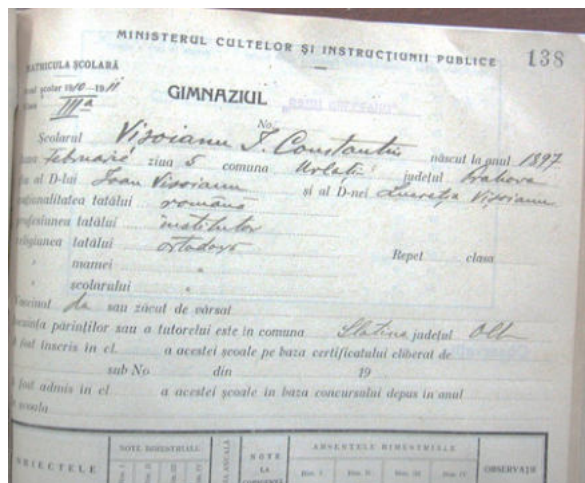 MINISTERUL CULTELOR ȘI INSTRUCȚIUNII PUBLICE 138
MATRICULA ȘCOLARĂ
școlar 1910-1911
IIIa
GIMNAZIUL
No.
Școlarul Vișoianu I. Constantin născut la anul 1897
Februarie ziua 5 comuna Urlați județul Prahova
al D-lui Ioan Vișoianu și al D-nei Lucreția Vișoianu
naționalitatea tatălui română
profesiunea tatălui institutor
religiunea tatălui ortodoxă Repet clasa
" mamei "
" școlarului "
Vaccinat da sau zăcut de vărsat
părinților sau a tutorelui este în comuna Slatina județul Olt
fost inscris in cl. a acestei școale pe baza certificatului eliberat de
sub No din 19
fost admis in cl a acestei școale in baza concursului depus in anul
școala
OBIECTELE NOTE BIMESTRIALE NOTE LA ABSENȚELE BIMESTRIALE OBSERVAȚII